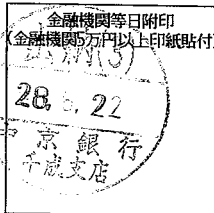 金融機関等日附印
(金融機関5万円以上印紙貼付)
(3)
28. 6. 22
中京銀行
千成支店